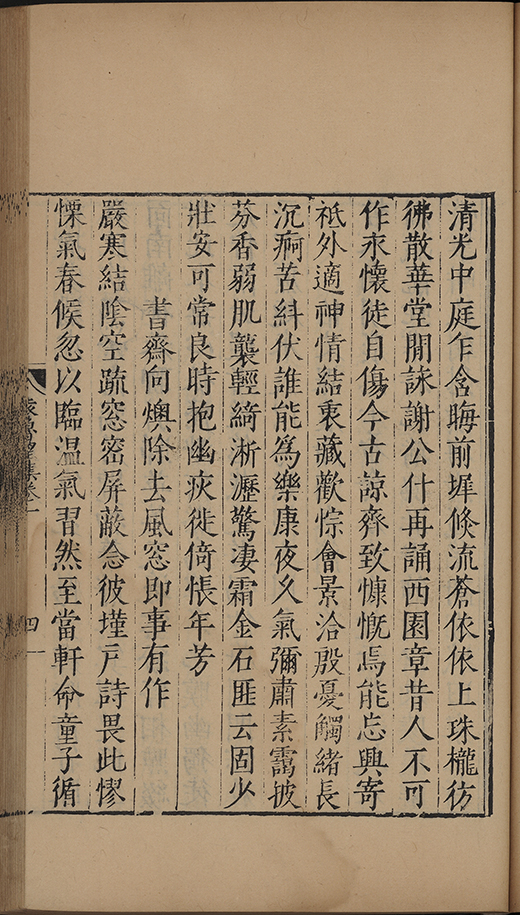 清光中庭乍含晦前墀倐流蒼依依上珠櫳彷
彿散華堂閒詠謝公什再誦西園章昔人不可
作永懷徒自傷今古諒齊致慷慨焉能忘興寄
祗外適神情結衷藏歡悰會景洽殷憂觸緒長
沉痾苦糾伏誰能爲樂康夜久氣彌肅素靄披
芬香弱肌襲輕綺淅瀝驚凄霜金石匪云固少
壯安可常良時抱幽疢徙倚悵年芳
書齋向燠除去風窓即事有作
嚴寒結陰空疏窓密屏蔽念彼墐戸詩畏此憀
慄氣春候忽以臨温氣習然至當軒命童子循
集卷一
四